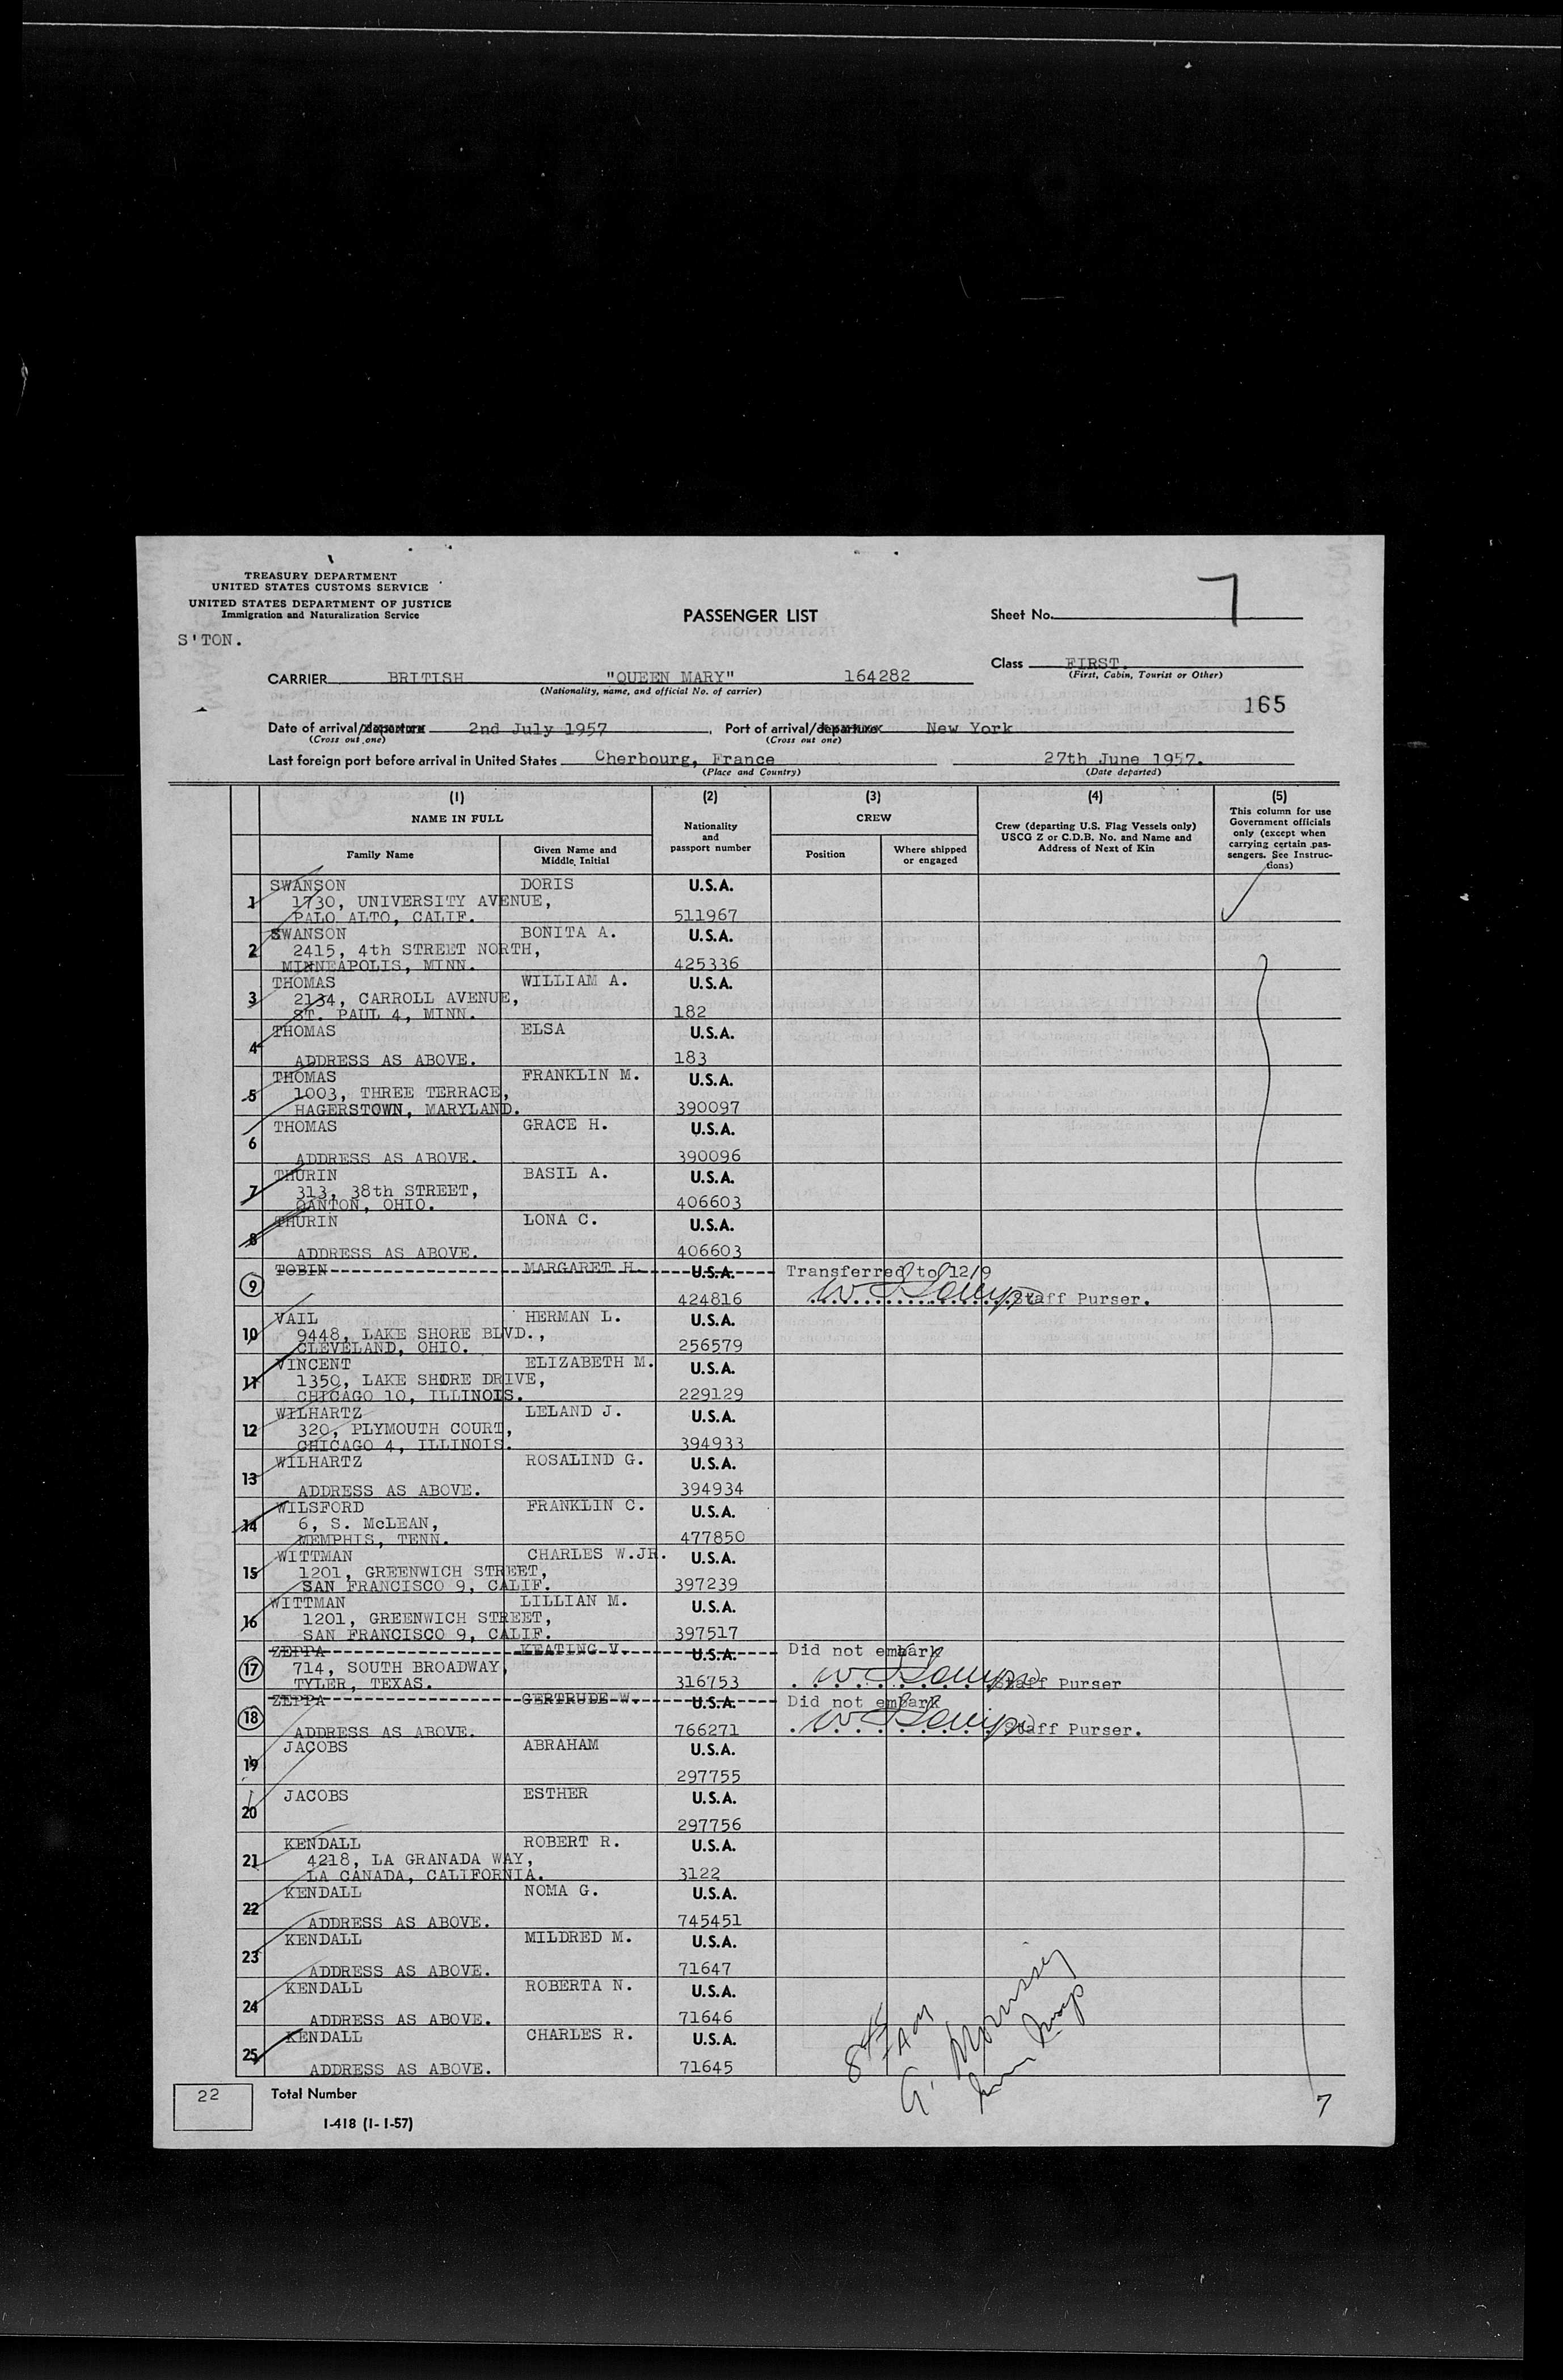 TREASURY DEPARTMENT
UNITED STATES CUSTOMS SERVICE
UNITED STATES DEPARTMENT OF JUSTICE
Immigration and Naturalization Service
S'TON.
PASSENGER LIST
Sheet No. 7
Class FIRST.
(First, Cabin, Tourist or Other)
CARRIER BRITISH "QUEEN MARY" 164282
(Nationality, name, and official No. of carrier)
165
Date of arrival/departure 2nd July 1957, Port of arrival/departure New York
(Cross out one) (Cross out one)
Last foreign port before arrival in United States Cherbourg, France 27th June 1957.
(Place and Country) (Date departed)
(1) (2) (3) (4) (5)
NAME IN FULL
Family Name
Given Name and Middle Initial
Nationality and passport number
CREW
Position
Where shipped or engaged
Crew (departing U.S. Flag Vessels only) USCG Z or C.D.B. No. and Name and Address of Next of Kin
This column for use Government officials only (except when carrying certain pas-sengers. See Instruc-tions)
1 SWANSON DORIS U.S.A.
1730, UNIVERSITY AVENUE,
PALO ALTO, CALIF. 511967
2 SWANSON BONITA A. U.S.A.
2415, 4th STREET NORTH,
MINNEAPOLIS, MINN. 425336
3 THOMAS WILLIAM A. U.S.A.
2134, CARROLL AVENUE,
ST. PAUL 4, MINN. 182
4 THOMAS ELSA U.S.A.
ADDRESS AS ABOVE. 183
5 THOMAS FRANKLIN M. U.S.A.
1003, THREE TERRACE,
HAGERSTOWN, MARYLAND. 390097
6 THOMAS GRACE H. U.S.A.
ADDRESS AS ABOVE. 390096
7 THURIN BASIL A. U.S.A.
313, 38th STREET,
CANTON, OHIO. 406603
8 THURIN LONA C. U.S.A.
ADDRESS AS ABOVE. 406603
9 TOBIN MARGARET H. U.S.A. Transferred to 12/9
424816 Staff Purser.
10 VAIL HERMAN L. U.S.A.
9448, LAKE SHORE BLVD.,
CLEVELAND, OHIO. 256579
11 VINCENT ELIZABETH M. U.S.A.
1350, LAKE SHORE DRIVE,
CHICAGO 10, ILLINOIS. 229129
12 WILHARTZ LELAND J. U.S.A.
320, PLYMOUTH COURT,
CHICAGO 4, ILLINOIS. 394933
13 WILHARTZ ROSALIND G. U.S.A.
ADDRESS AS ABOVE. 394934
14 WILSFORD FRANKLIN C. U.S.A.
6, S. McLEAN,
MEMPHIS, TENN. 477850
15 WITTMAN CHARLES W.JR. U.S.A.
1201, GREENWICH STREET,
SAN FRANCISCO 9, CALIF. 397239
16 WITTMAN LILLIAN M. U.S.A.
1201, GREENWICH STREET,
SAN FRANCISCO 9, CALIF. 397517
17 ZEPPA KEATING V. U.S.A. Did not embark
714, SOUTH BROADWAY,
TYLER, TEXAS. 316753 Staff Purser
18 ZEPPA GERTRUDE W. U.S.A. Did not embark
ADDRESS AS ABOVE. 766271 Staff Purser.
19 JACOBS ABRAHAM U.S.A.
297755
20 JACOBS ESTHER U.S.A.
297756
21 KENDALL ROBERT R. U.S.A.
4218, LA GRANADA WAY,
LA CANADA, CALIFORNIA. 3122
22 KENDALL NOMA G. U.S.A.
ADDRESS AS ABOVE. 745451
23 KENDALL MILDRED M. U.S.A.
ADDRESS AS ABOVE. 71647
24 KENDALL ROBERTA N. U.S.A.
ADDRESS AS ABOVE. 71646
25 KENDALL CHARLES R. U.S.A.
ADDRESS AS ABOVE. 71645
22 Total Number
7
I-418 (1-1-57)